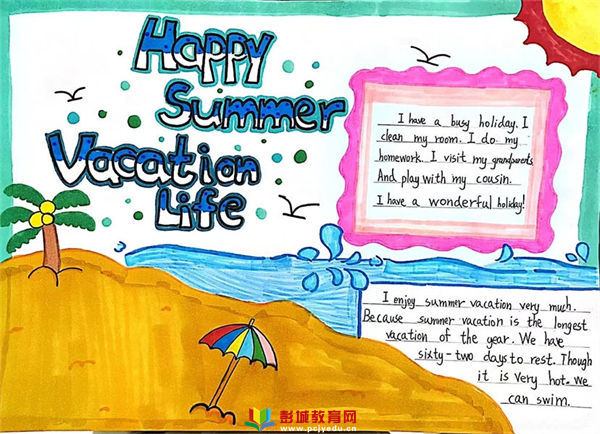 Happy
Summer
Vacation
Life
I have a busy holiday. I
clean my room. I do my
homework. I visit my grandparents
And play with my cousin.
I have a wonderful holiday!
I enjoy summer vacation very much.
Because summer vacation is the longest
vacation of the year. We have
sixty-two days to rest. Though
it is very hot. we
can swim.
彭城教育网
www.pcjyedu.cn